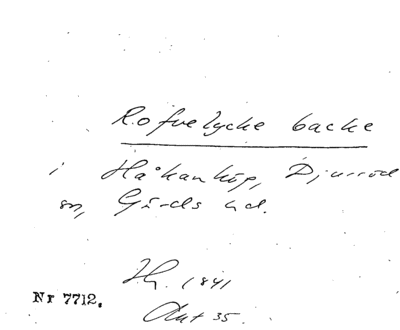 Rofvelycke backe
i Håkanköp, Djurröd
sn, Gärds hd.
1841
Nr 7712.
Akt 35.